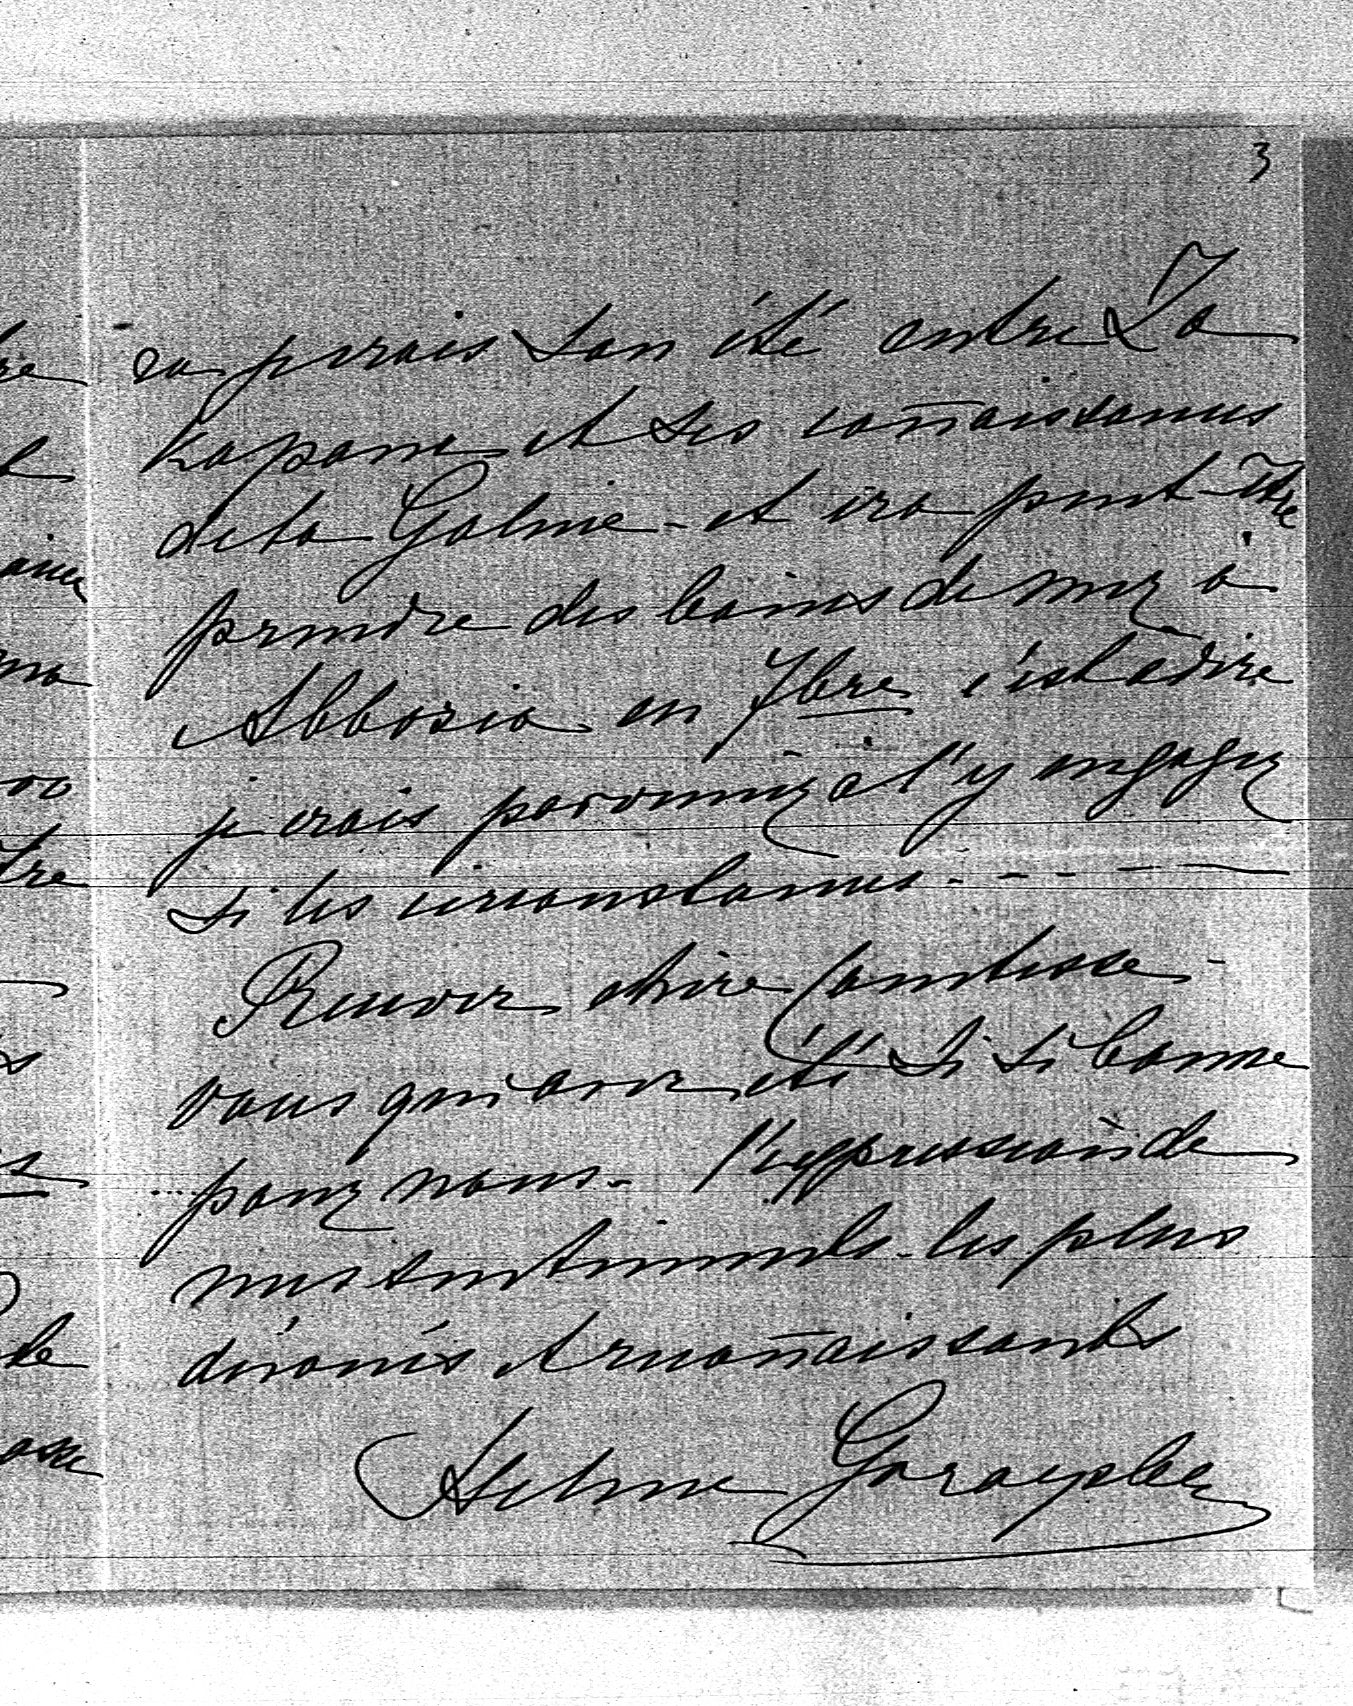 3
va je crois son été entre Za
kopane et ses coñaissances
de la Galicie - et ira peut-être
prendre des bains de mer à
Abbazia en 7bre c'est a dire
je crois parvenir a l'y engager
si les circonstances - - - - —
Recevez chère Comtesse -
vous qui avez été si si bonne
pour nous - l'expression de
mes sentiments les plus
dévoués et recoñaissants
Hélène